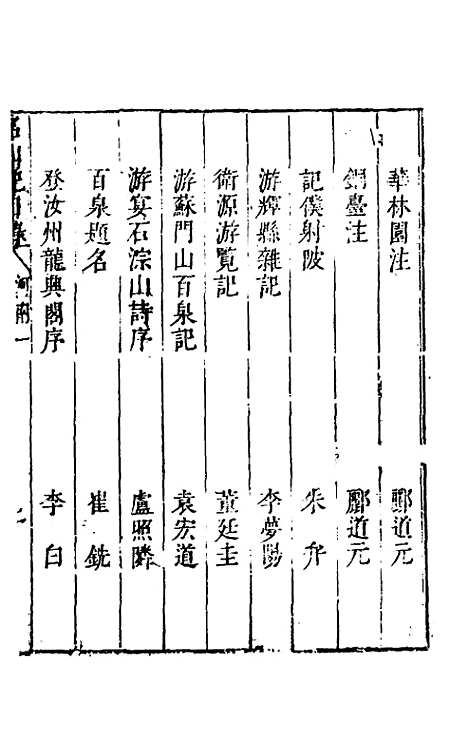 華林園注 酈道元
銅臺注 酈道元
記僕射陂 朱弁
游輝縣雜記 李夢陽
衛源游覽記 董廷圭
游蘇門山百泉記 袁宏道
游宴石淙山詩序 盧照隣
百泉題名 崔銑
登汝州龍興閣序 李白
名山記目錄 河南一